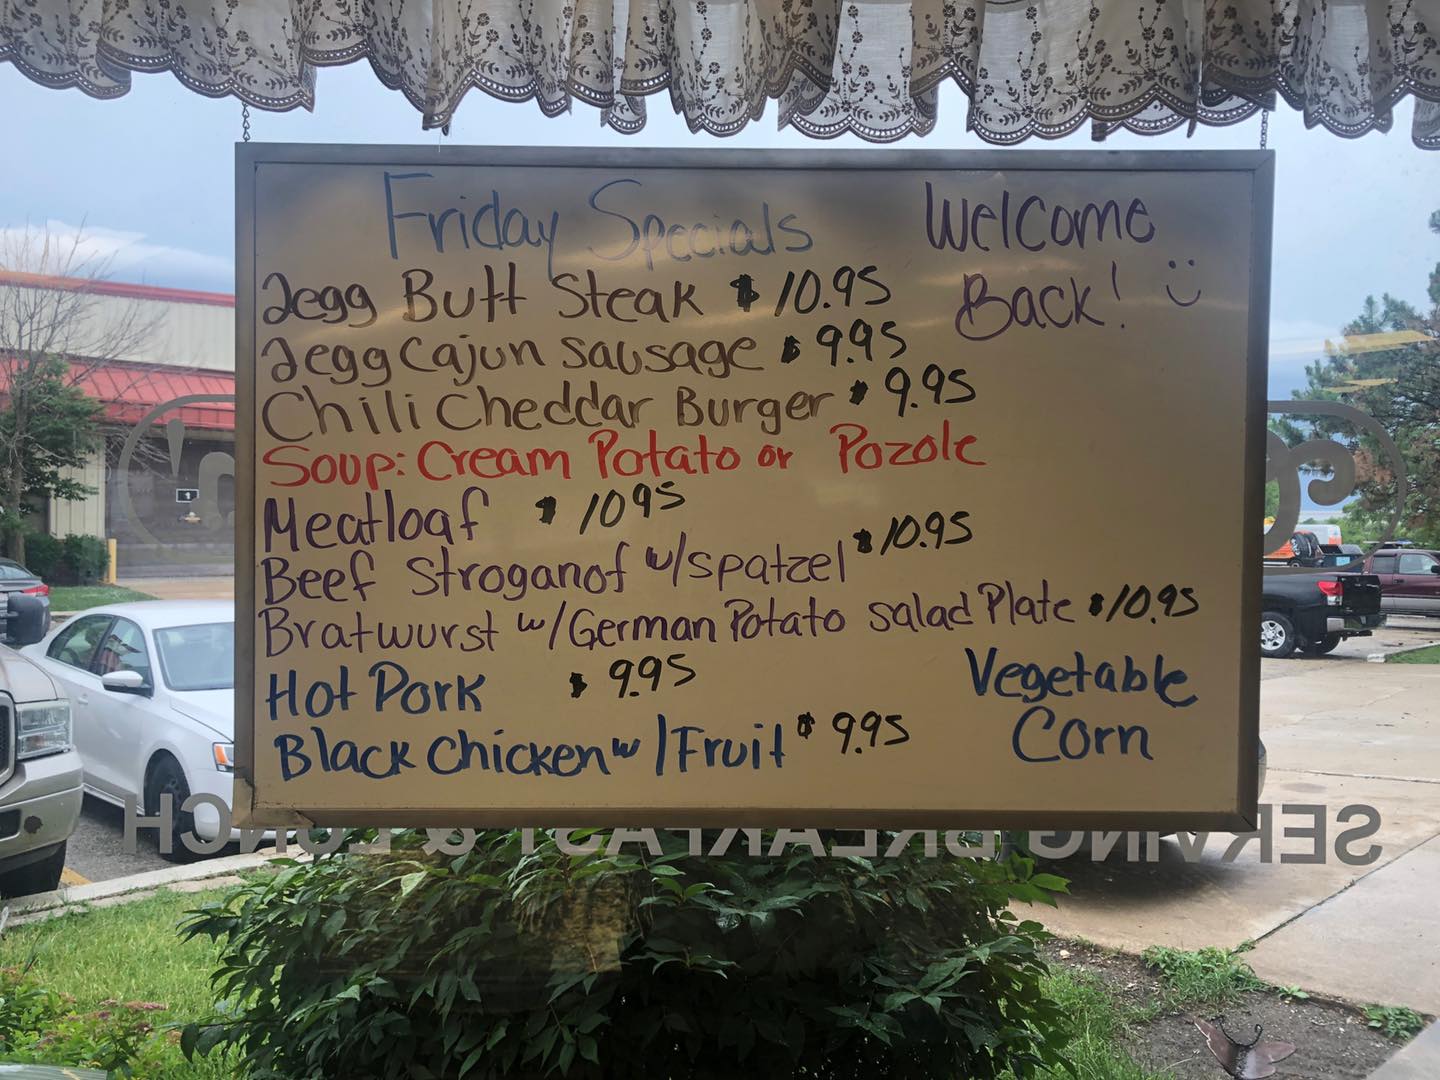 Friday Specials
Welcome
Back! :)
2egg Butt Steak $10.95
2egg Cajun Sausage $9.95
Chili Cheddar Burger $9.95
Soup: Cream Potato or Pozole
Meatloaf $1095
Beef Stroganof w/spatzel $10.95
Bratwurst w/German Potato salad Plate $10.95
Hot Pork $9.95
Vegetable
Corn
Black Chicken w/Fruit $9.95
SERVING BREAKFAST & LUNCH
1